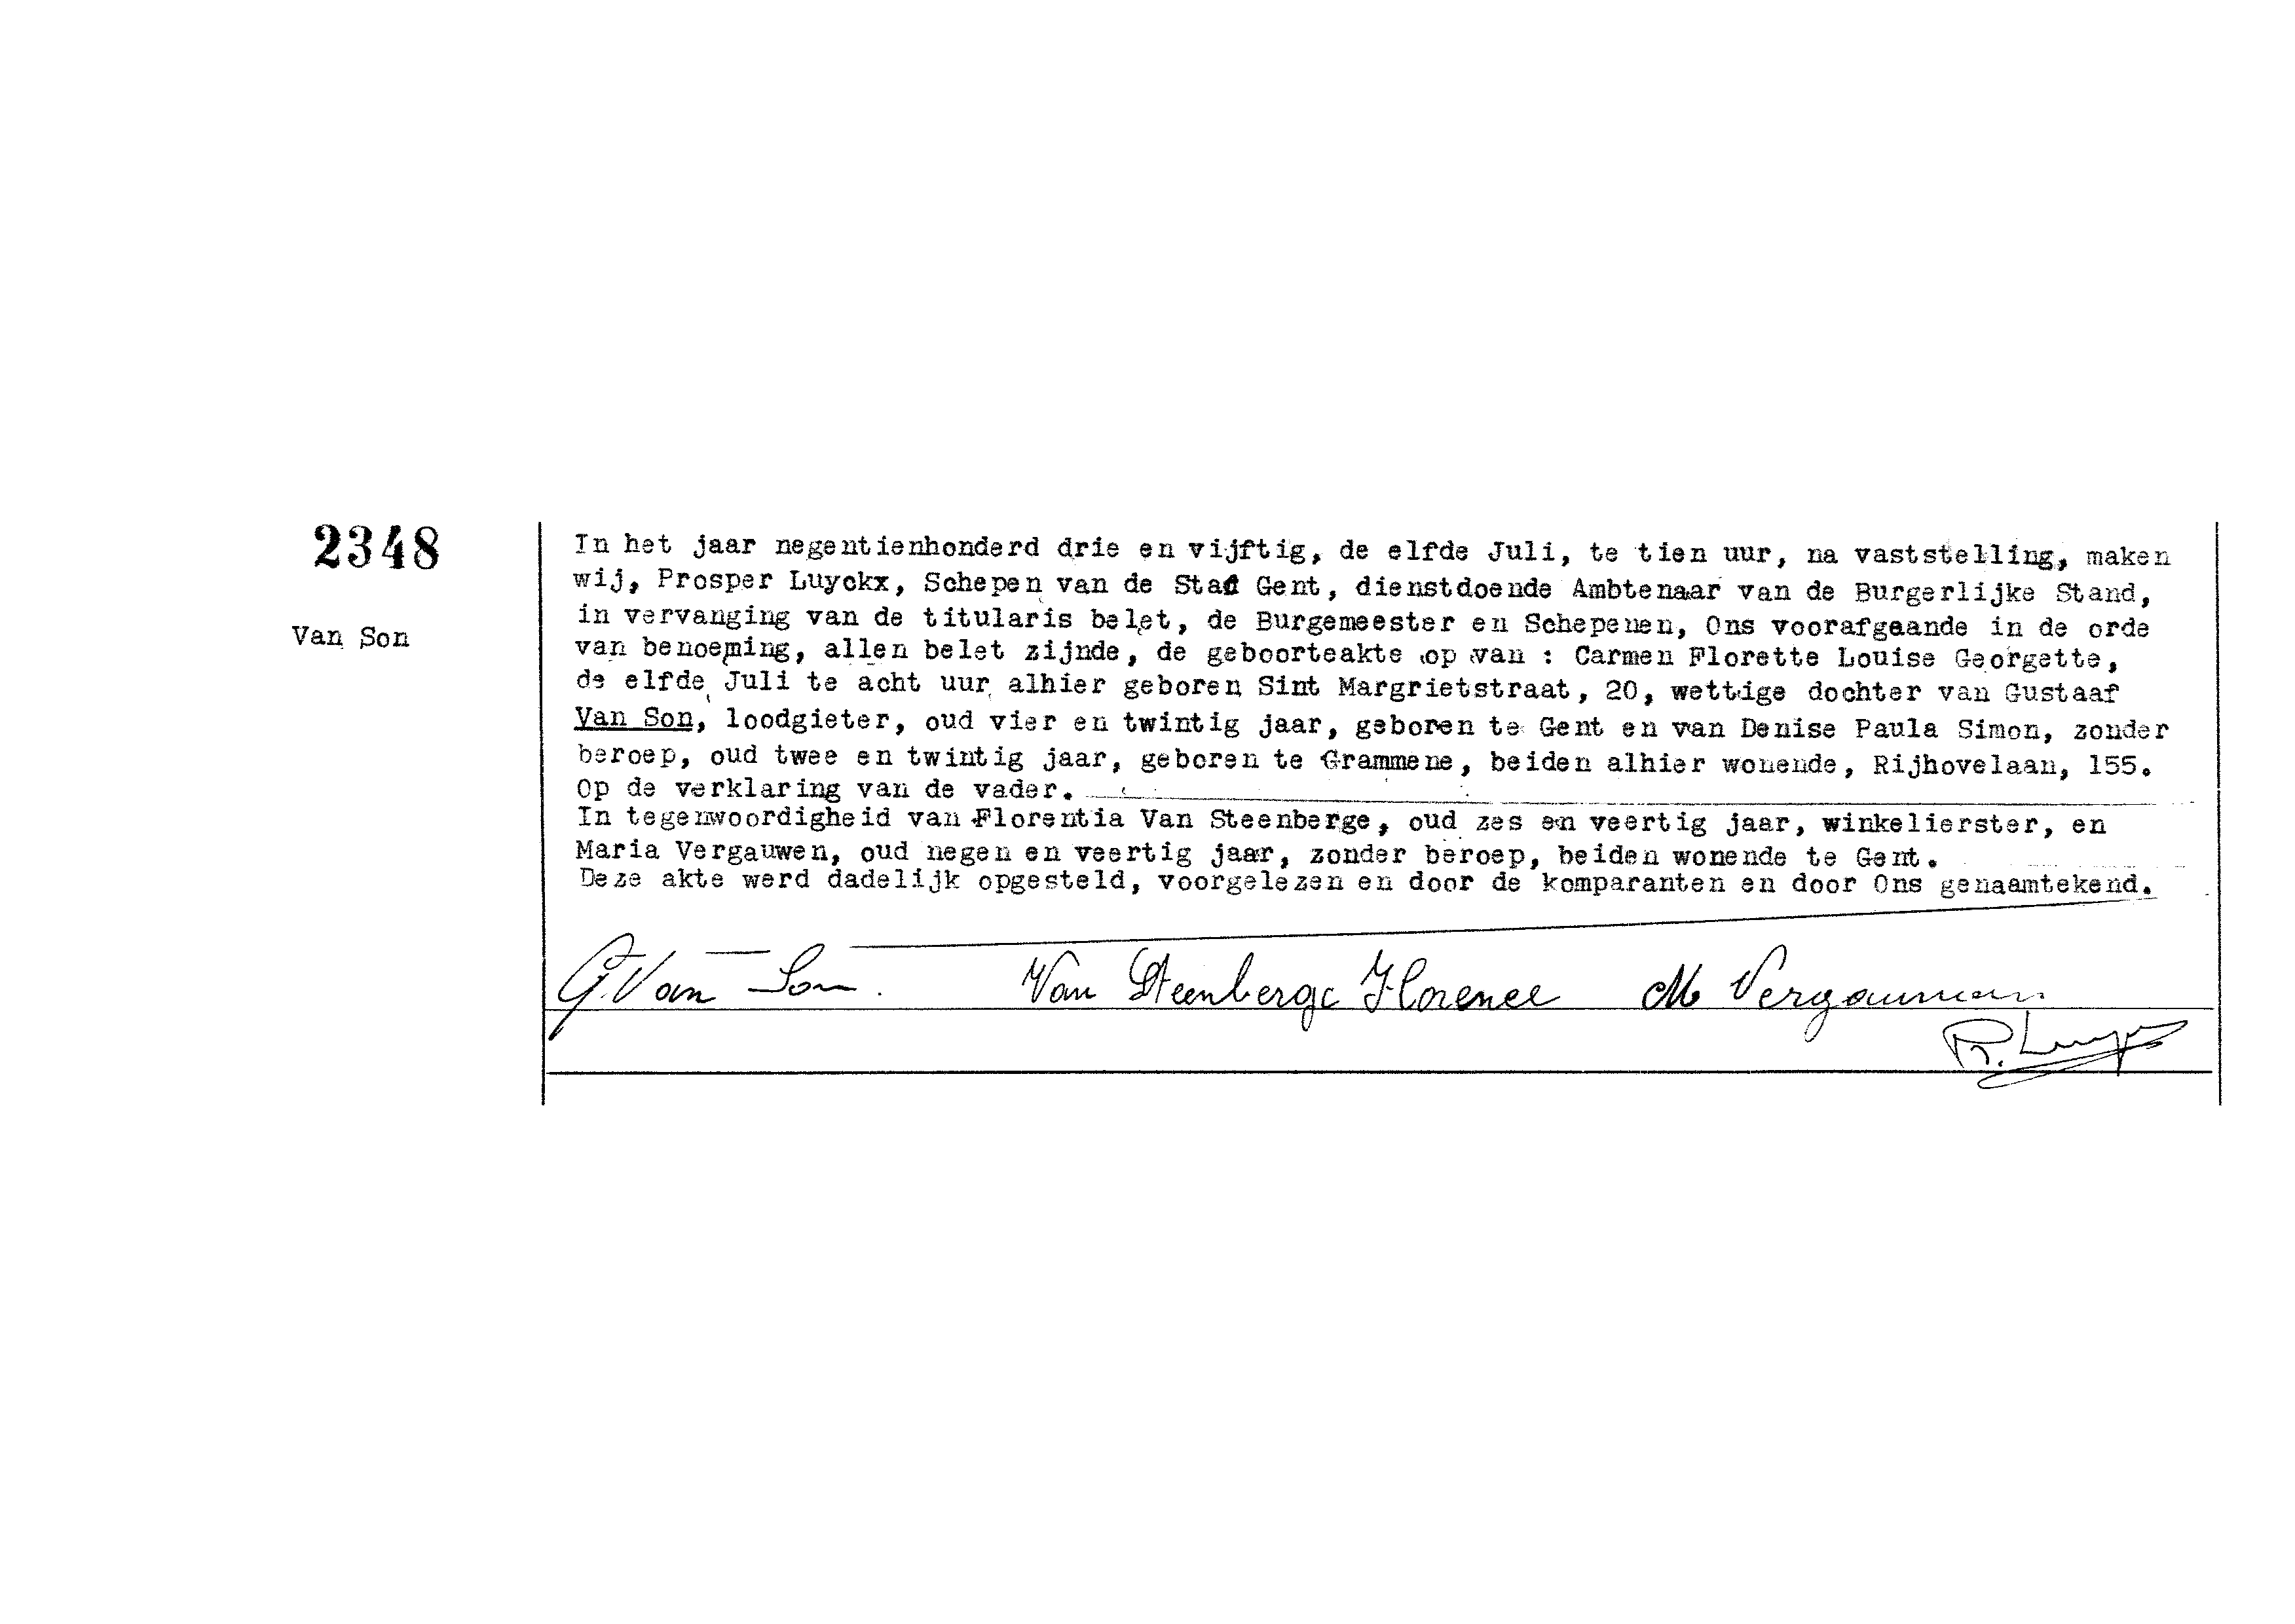 2348
Van Son
In het jaar negentienhonderd drie en vijftig, de elfde Juli, te tien uur, na vaststelling, maken
wij, Prosper Luyckx, Schepen van de Stad Gent, dienstdoende Ambtenaar van de Burgerlijke Stand,
in vervanging van de titularis belet, de Burgemeester en Schepenen, Ons voorafgaande in de orde
van benoeming, allen belet zijnde, de geboorteakte op van : Carmen Florette Louise Georgette,
de elfde Juli te acht uur alhier geboren Sint Margrietstraat, 20, wettige dochter van Gustaaf
Van Son, loodgieter, oud vier en twintig jaar, geboren te Gent en van Denise Paula Simon, zonder
beroep, oud twee en twintig jaar, geboren te Grammene, beiden alhier wonende, Rijhovelaan, 155.
Op de verklaring van de vader.
In tegenwoordigheid van Florentia Van Steenberge, oud zes en veertig jaar, winkelierster, en
Maria Vergauwen, oud negen en veertig jaar, zonder beroep, beiden wonende te Gent.
Deze akte werd dadelijk opgesteld, voorgelezen en door de komparanten en door Ons genaamtekend.
G. Van Son. Van Steenberge Florence M Vergauwen